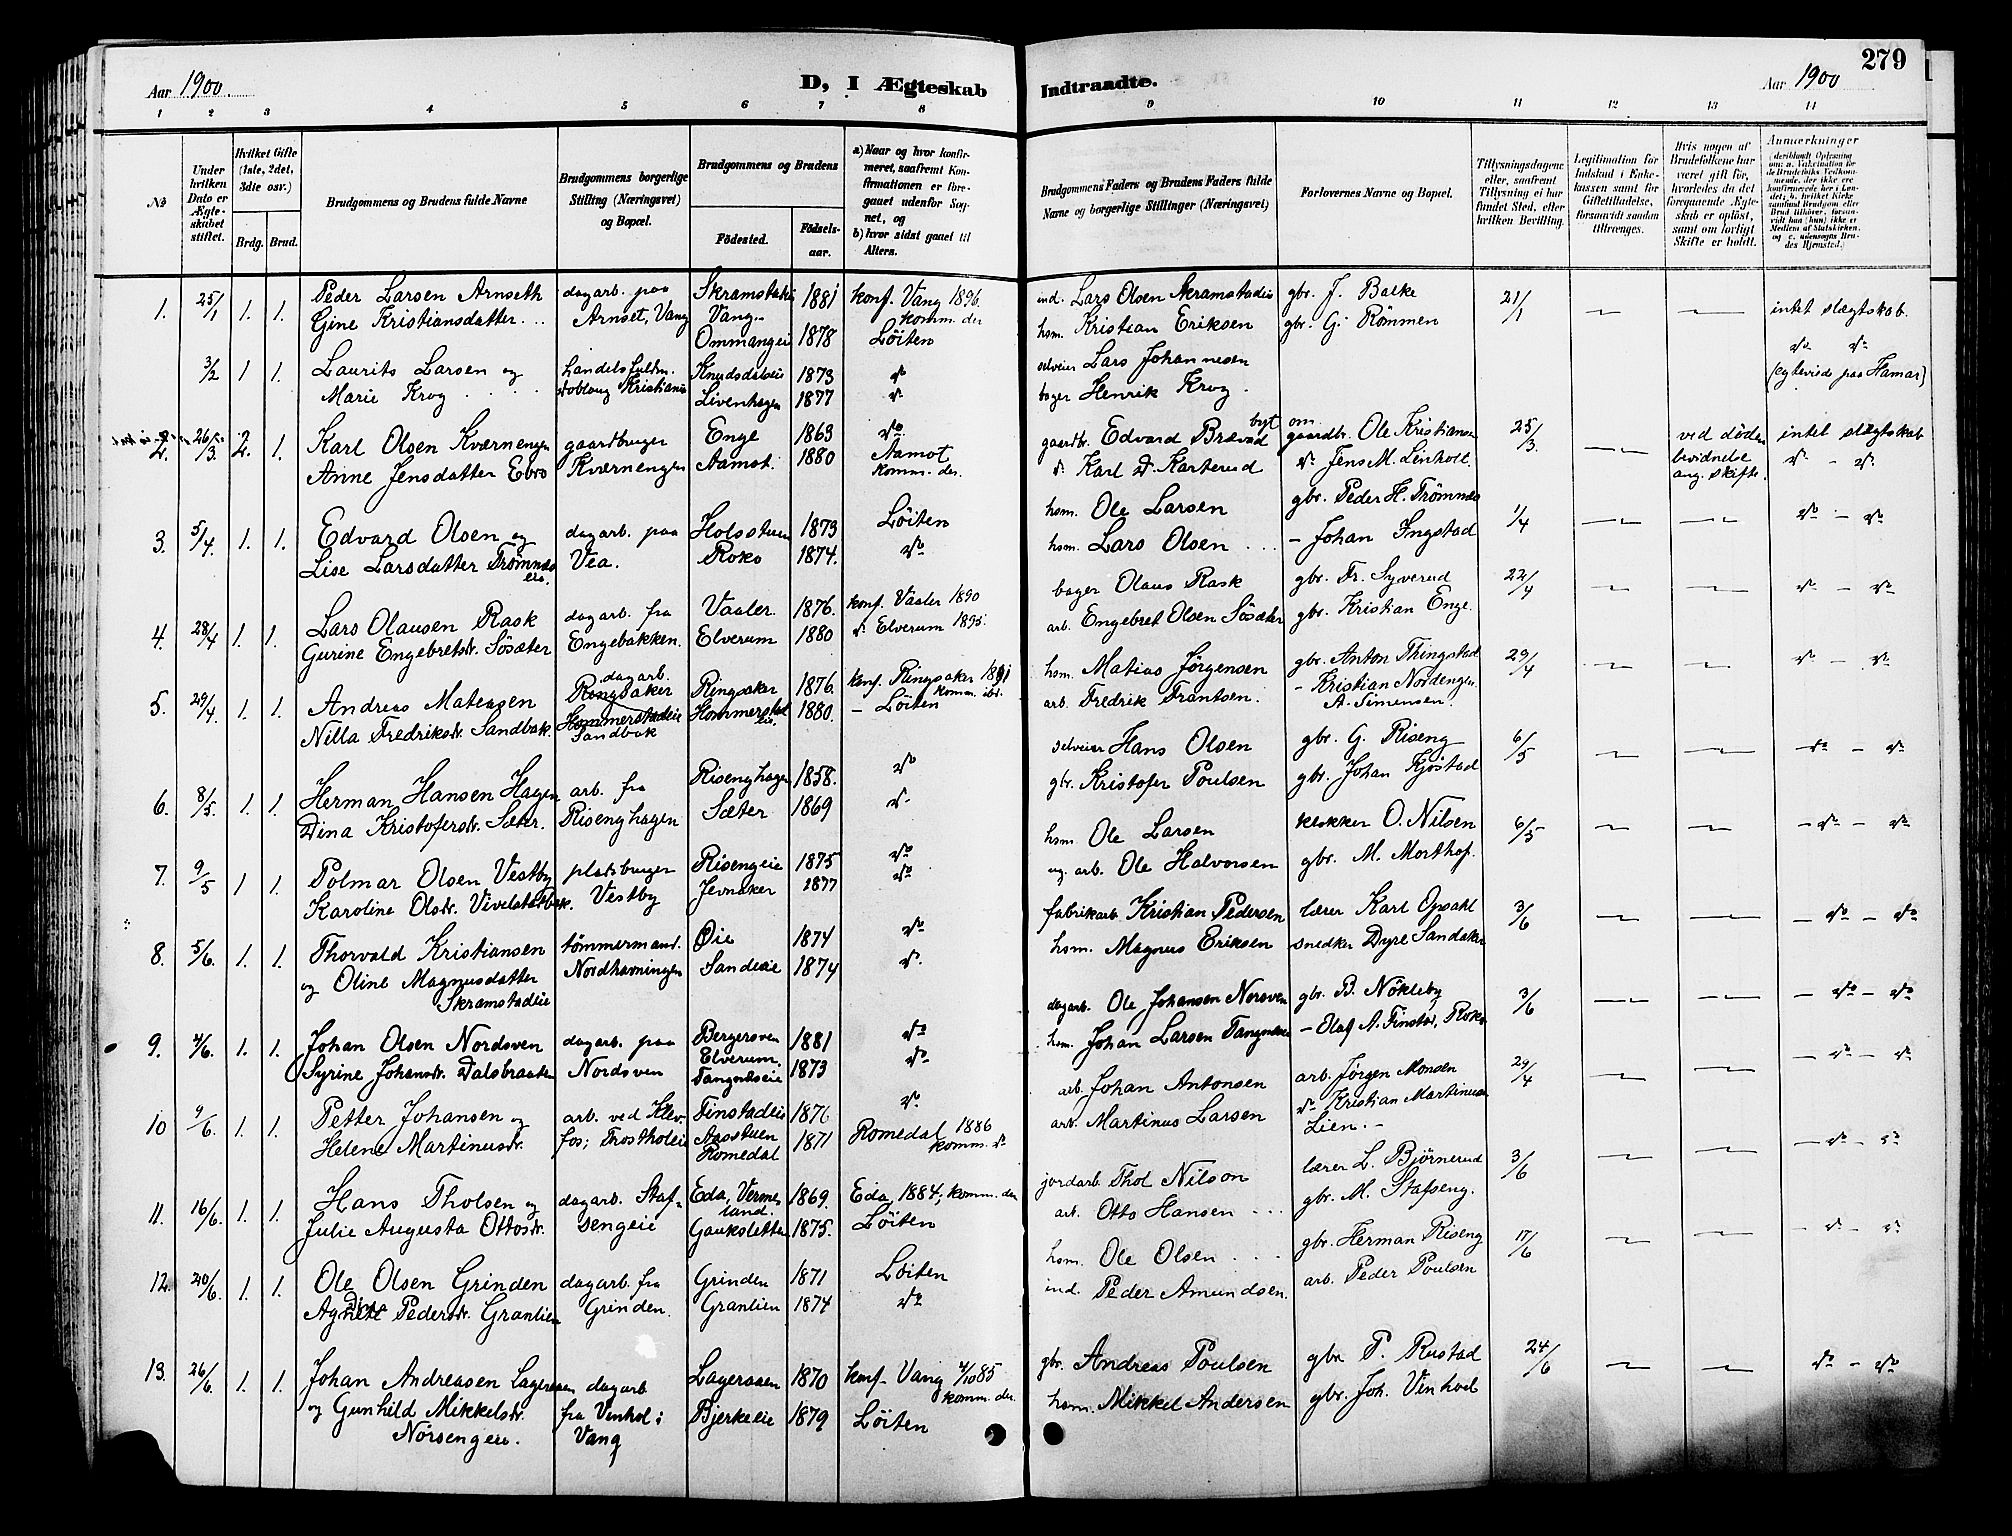 279
Aar 1900
D, I Ægteskab Indtraadte.
Aar 1900
1 2 3 4 5 6 7 8 9 10 11 12 13 14
No
Under hvilken Dato er Ægteskabet stiftet.
Hvilket Gifte (1ste, 2det, 3die osv.)
Brdg. Brud.
Brudgommens og Brudens fulde Navne
Brudgommens borgerlige Stilling (Næringsvei) og Bopæl.
Brudgommens og Brudens
Fødested. Fødselsaar.
a) Naar og hvor konfirmeret, saafremt Konfirmationen er foregaaet udenfor Sognet, og
b) hvor sidst gaaet til Alters.
Brudgommens Faders og Brudens Faders fulde Navne og borgerlige Stillinger (Næringsvei)
Forlovernes Navne og Bopæl.
Tillysningsdagene eller, saafremt Tillysning ei har fundet Sted, efter hvilken Bevilling.
Legitimation for Indskud i Enkekassen samt for Giftetilladelse, forsaavidt saadan tiltrænges.
Hvis nogen af Brudefolkene har været gift før, hvorledes da det foregaaende Ægteskab er opløst, samt om lovligt Skifte er holdt.
Anmærkninger
1. 25/1 1. 1. Peder Larsen Arnseth dagarb. paa Skramstadei 1881 konf. Vang 1896. ind. Lars Olsen Skramstadeie gbr. J. Balke 21/1 intet slægtskab.
Gine Kristiansdatter Arnset, Vang Vang komm. der hsm. Kristian Eriksen gbr. G. Rømmen
Ommangeie 1878 Løiten
3/2 1 1. Laurits Larsen og handelsfuldm. Knudsdaleie 1873 do selveier Lars Johannesen do do
Marie Krog Kristiania Livenhagen 1877 do bager Henrik Krog (cybevids paa Hamar)
2. 26/3 2. 1. Karl Olsen Kværnengen gaardbruger Enge 1863 do gaardbr. Edvard Brævad gaardbr. Ole Kristiansen 25/3 ved døden intet slægtskab
Anne Jensdatter Ebro Kværnengen Aamot. 1880 Aamot komm. der. do Karl D. Karterud do Jens M. Linholt ang. skifte. do - do
3. 5/4. 1. 1. Edvard Olsen og dagarb. paa Holsstuen 1873 Løiten hsm. Ole Larsen gbr. Peder H. Trømnes 1/4 do - do
Lise Larsdatter Trømnes Vea. Roko 1874. do hsm. Lars Olsen - Johan Ingstad
4. 28/4 1. 1. Lars Olausen Rask dagarb. fra Vaaler 1876. konf. Vaaler 1890 bager Olaus Rask gbr. Fr. Syverud 22/4 do - do
Gurine Engebretsdr. Søsæter Engebakken. Elverum 1880 do Elverum 1895. arb. Engebret Olsen Søsæter gbr. Kristian Enge.
5. 29/4. 1. 1. Andreas Matiasen dagarb. Ringsaker Ringsaker 1876. konf. Ringsaker 1891 komm. ibd. hsm. Matias Jørgensen gbr. Anton Thingstad 29/4 do - do
Nilla Fredriksdr. Sandbak. Hommerstadeie Sandbak Hommerstadeie 1880. - Løiten arb. Fredrik Frantsen. - Kristian Nordengen A. Simensen.
6. 8/5 1. 1. Herman Hansen Hagen arb. fra Risenghagen 1858. do selveier Hans Olsen gbr. G. Riseng 6/5 do - do
Dina Kristofersdr. Sæter. Risenghagen Sæter 1869 do gbr. Kristofer Poulsen gbr. Johan Kjøstad
7. 9/5 1 1. Polmar Olsen Vestby pladsbruger Risengeie 1875 do hsm. Ole Larsen klokker O. Nilsen 6/5 - do - do
Karoline Olsdr. Vivelstadbak. Vestby Jevnaker 1877 do ug. arb. Ole Halvorsen gbr. M. Morthof.
8. 5/6. 1. 1. Thorvald Kristiansen tømmermand. Øie 1874 do fabrikarb. Kristian Pedersen lærer Karl Opsahl 3/6 - do - do
og Oline Magnusdatter Skramstadeie Nordhavningen Sandeie 1874 do hsm. Magnus Eriksen snedker Dyre Sandaker
9. 4/6. 1. 1. Johan Olsen Nordsven dagarb. paa Bergersven 1881 do dagarb. Ole Johansen Norsven gbr. B. Nökleby 3/6 - do - do
Syrine Johansdr. Dalsbraaten Nordsven Elverum Tangneseie 1873 do hsm. Johan Larsen Tangnes - Olaf A. Finstad, Roko
10 9/6. 1. 1. Petter Johansen og arb. ved Klevfos; Frostholeie Finstadeie 1876 do arb. Johan Antonsen arb. Jørgen Monsen 29/4 - do - do
Helene Martinusdr. Aasstuen Romedal 1871 Romedal 1886 komm. do arb. Martinus Larsen do Kristian Martinusen Lien. -
11. 16/6. 1. 1. Hans Tholsen og dagarb. Stafsengeie Eda, Vermeland. 1869. Eda, 1884; komm. der jordarb. Thol Nilson lærer L. Bjørnerud 3/6 - do - do
Julie Augusta Ottosdr. Gaukstetten 1875. Løiten arb. Otto Hansen gbr. M. Stafseng.
12. 20/6. 1. 1. Ole Olsen Grinden dagarb. fra Grinden 1871 Løiten hsm. Ole Olsen gbr. Herman Riseng 17/6 - do - do
Agnete Dine Pedersdr. Granlien Grinden. Granlien 1874 do ind. Peder Amundsen. arb. Peder Poulsen
13. 26/6. 1. 1. Johan Andreasen Lageraaen dagarb Lageraaen 1870 konf. Vang 4/10 85 komm. der gbr. Andreas Poulsen gbr. P. Rustad 24/6 do - do
og Gunhild Mikkelsdr. Norsengeie. fra Venhol i Vang Bjerkeeie 1879 Løiten hsm. Mikkel Andersen gbr. Joh. Venhoel